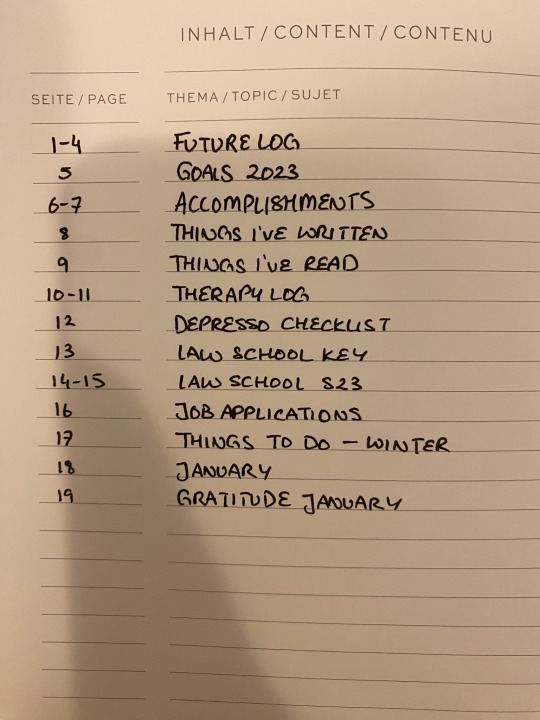 INHALT / CONTENT / CONTENU
SEITE / PAGE THEMA / TOPIC / SUJET
1-4 FUTURE LOG
5 GOALS 2023
6-7 ACCOMPLISHMENTS
8 THINGS I'VE WRITTEN
9 THINGS I'VE READ
10-11 THERAPY LOG
12 DEPRESSO CHECKLIST
13 LAW SCHOOL KEY
14-15 LAW SCHOOL S23
16 JOB APPLICATIONS
17 THINGS TO DO - WINTER
18 JANUARY
19 GRATITUDE JANUARY